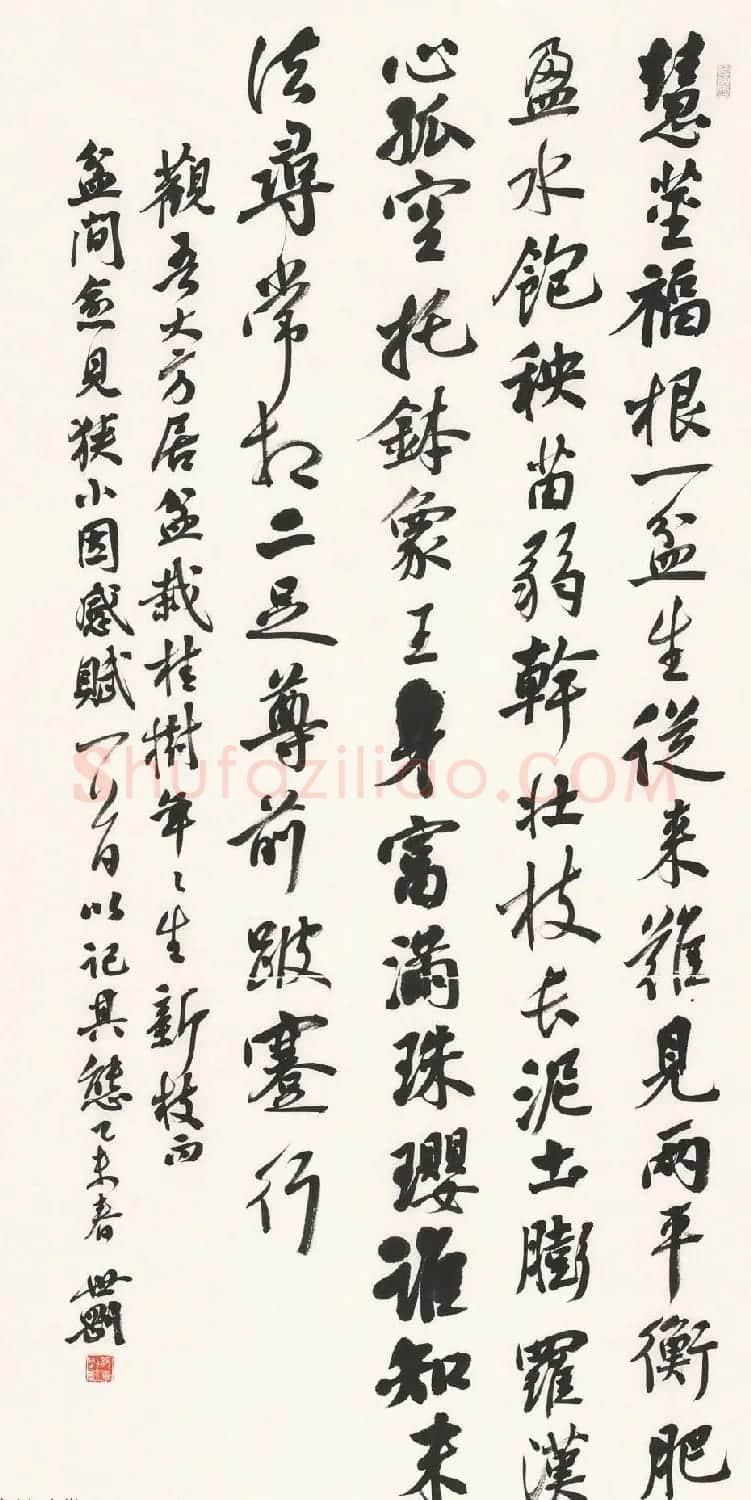 慧莖福根一盆生從来難見兩平衡肥
盈水飽秧苗弱幹壯枝長泥土膨羅漢
心孤空托鉢象王身富滿珠瓔誰知末
法尋常相二足尊前跛蹇行
觀吾大方居盆栽桂樹年々生新枝而
盆間愈見狹小因感賦一首以記其態乙未春 世剛
Shufaziliao.COM